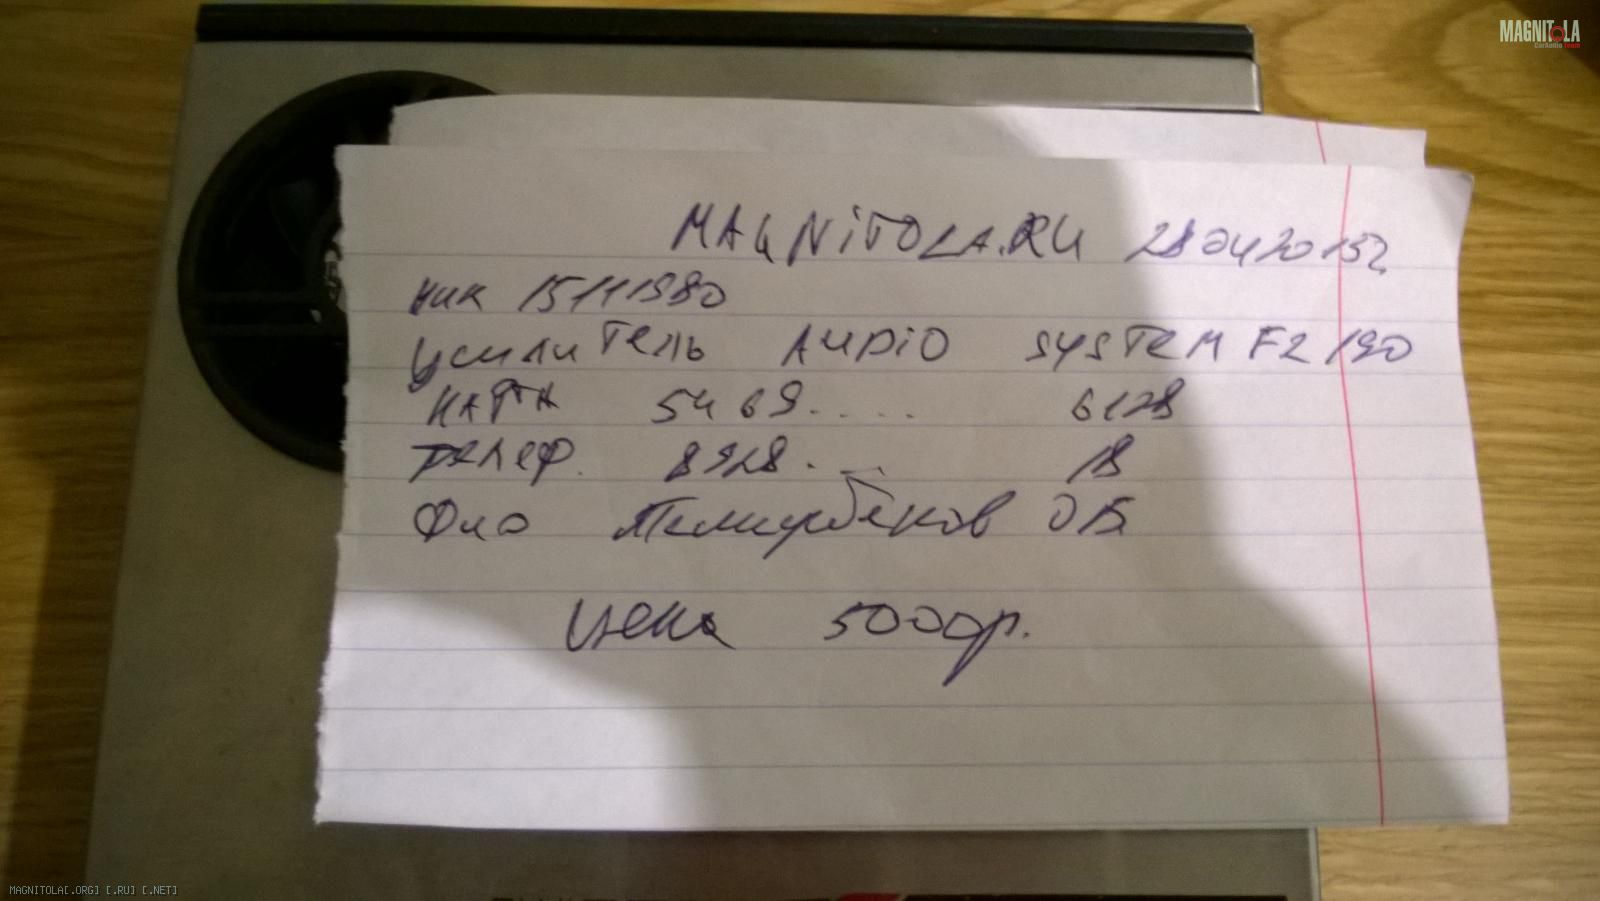 MAGNITOLA
CarAudio team
MAGNiTOLA.RU 28042015г
ник 15111980
Усилитель AUDiO SYSTEM F2 190
КАРТА 5469..... 6128
телеф. 8928. 18
Фио Темирбеков ОБ
Цена 5000р.
MAGNITOLA[.ORG] [.RU] [.NET]